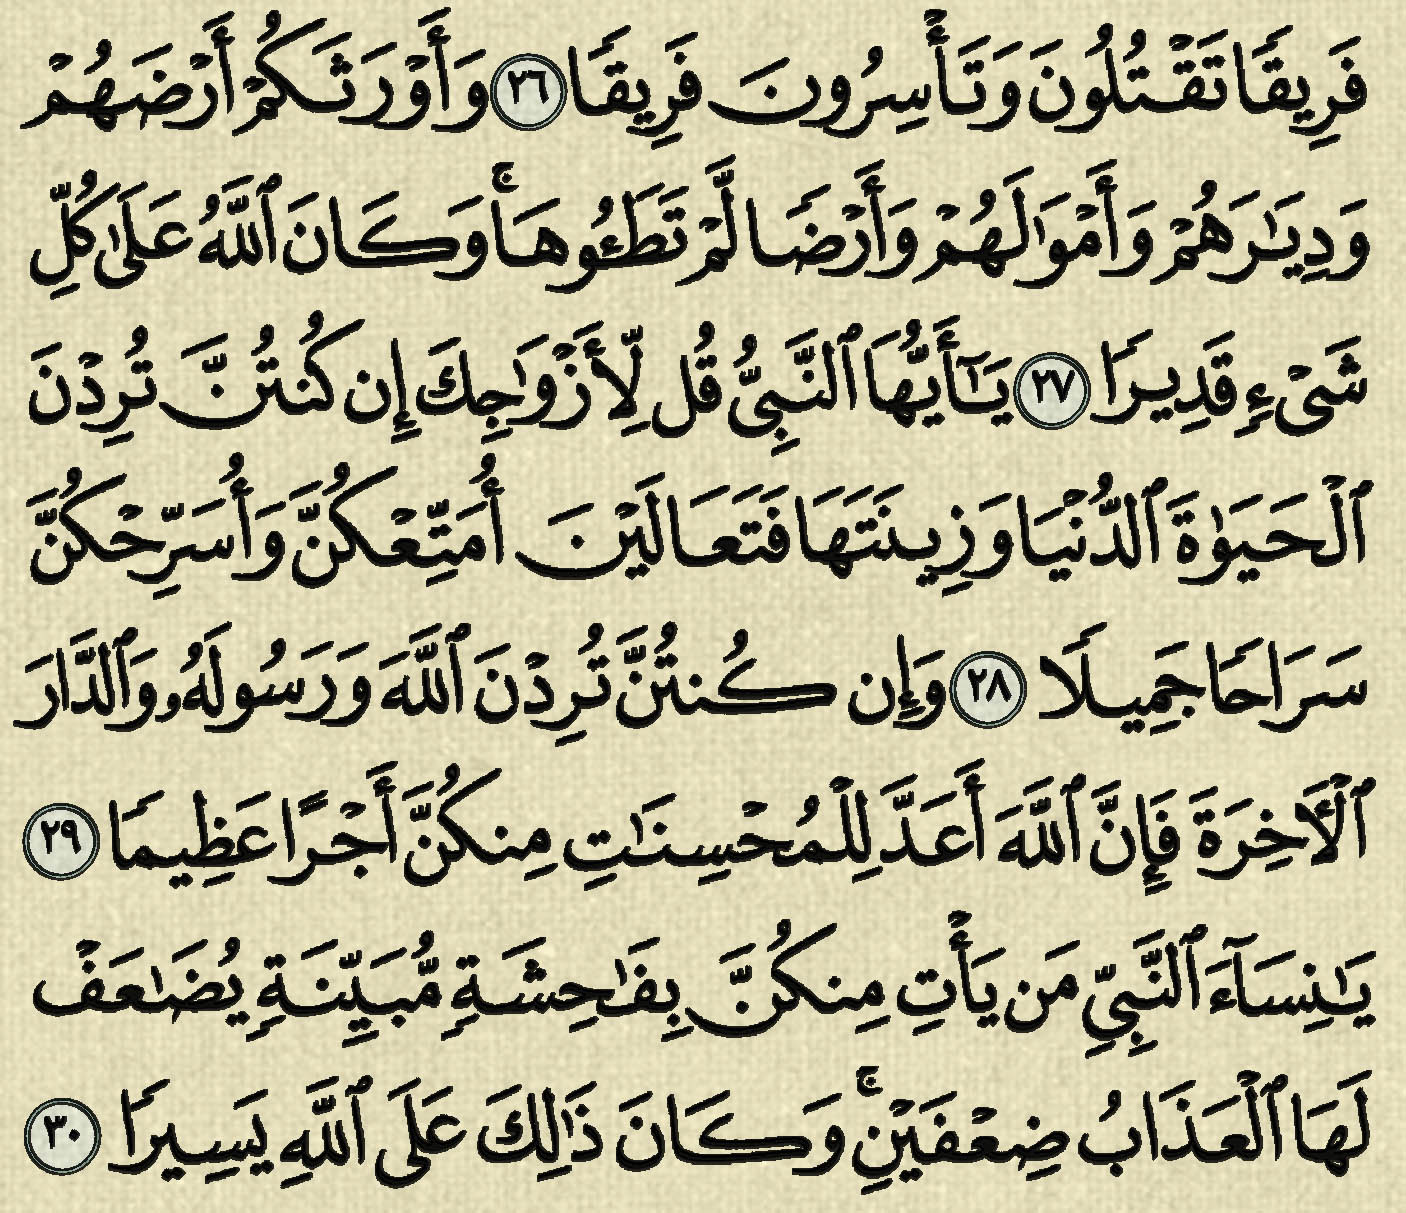 فَرِيقًا تَقْتُلُونَ وَتَأْسِرُونَ فَرِيقًا ٢٦ وَأَوْرَثَكُمْ أَرْضَهُمْ
وَدِيَٰرَهُمْ وَأَمْوَٰلَهُمْ وَأَرْضًا لَّمْ تَطَـُٔوهَا ۚ وَكَانَ ٱللَّهُ عَلَىٰ كُلِّ
شَىْءٍ قَدِيرًا ٢٧ يَـٰٓأَيُّهَا ٱلنَّبِىُّ قُل لِّأَزْوَٰجِكَ إِن كُنتُنَّ تُرِدْنَ
ٱلْحَيَوٰةَ ٱلدُّنْيَا وَزِينَتَهَا فَتَعَالَيْنَ أُمَتِّعْكُنَّ وَأُسَرِّحْكُنَّ
سَرَاحًا جَمِيلًا ٢٨ وَإِن كُنتُنَّ تُرِدْنَ ٱللَّهَ وَرَسُولَهُۥ وَٱلدَّارَ
ٱلْـَٔاخِرَةَ فَإِنَّ ٱللَّهَ أَعَدَّ لِلْمُحْسِنَـٰتِ مِنكُنَّ أَجْرًا عَظِيمًا ٢٩
يَـٰنِسَآءَ ٱلنَّبِىِّ مَن يَأْتِ مِنكُنَّ بِفَـٰحِشَةٍ مُّبَيِّنَةٍ يُضَـٰعَفْ
لَهَا ٱلْعَذَابُ ضِعْفَيْنِ ۚ وَكَانَ ذَٰلِكَ عَلَى ٱللَّهِ يَسِيرًا ٣٠